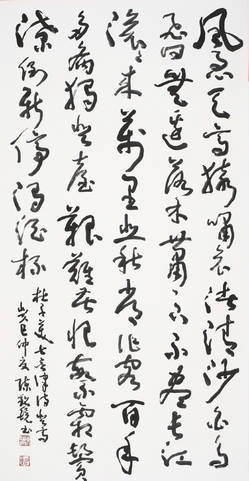 風急天高猿嘯哀渚清沙白鳥
飛回無邊落木蕭蕭下不盡長江
滾滾來萬里悲秋常作客百年
多病獨登臺艱難苦恨繁霜鬢
潦倒新停濁酒杯
杜子美七言律詩登高
癸巳仲夏陳書